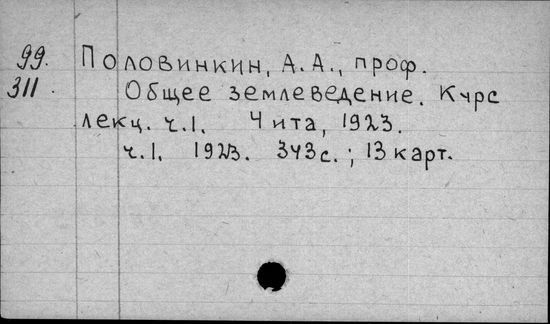 99. Половинкин, А.А., проф.
311. Общее землеведение. Курс
лекц. ч.1. Чита, 1923.
ч.1. 1923. 343с.; 13 карт.